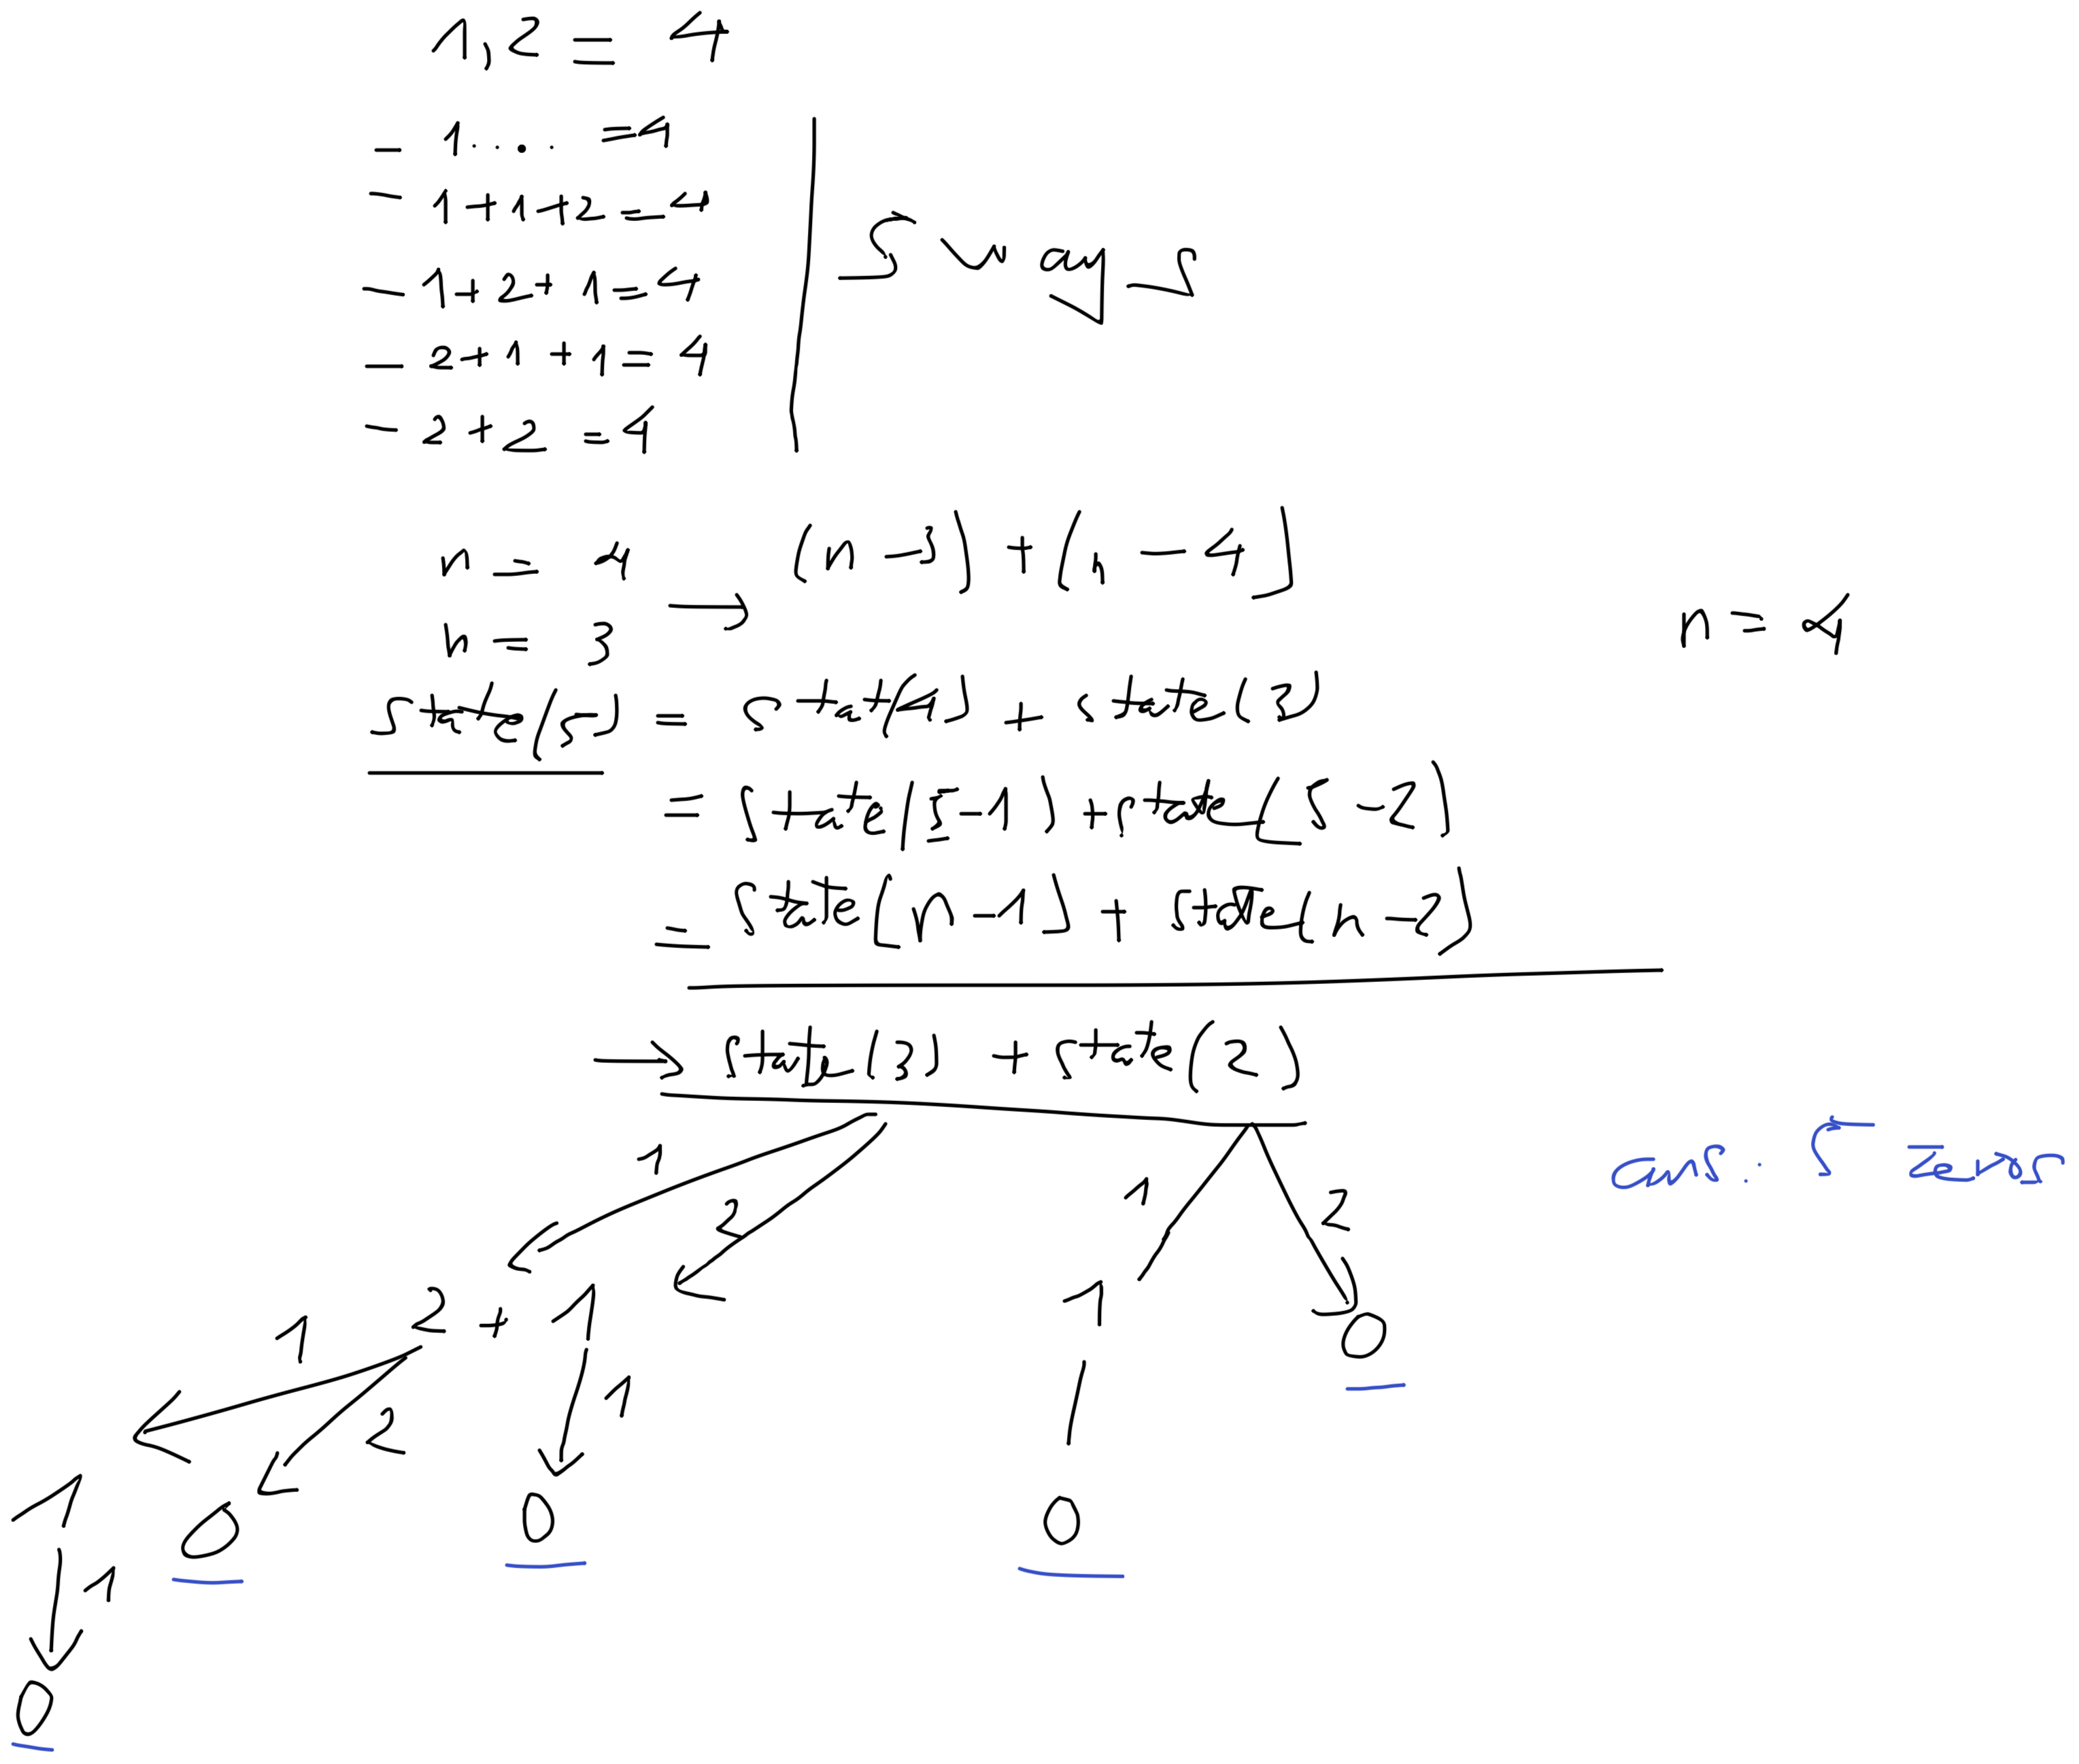 1,2 = 4
- 1.... =4
- 1+1+2=4
- 1+2+1=4
- 2+1+1=4
- 2+2=4
5 ways
n = 4
n = 3
→ (n-3)+(n-4)
n = 4
state(5) = stat(4) + state(3)
= state(5-1)+state(5-2)
= state(n-1) + state(n-2)
→ state(3) + state(2)
ans: 5 zeros
1 2 1 2
2 + 1 1 0
1 2 1
1 0 0 0
1
0